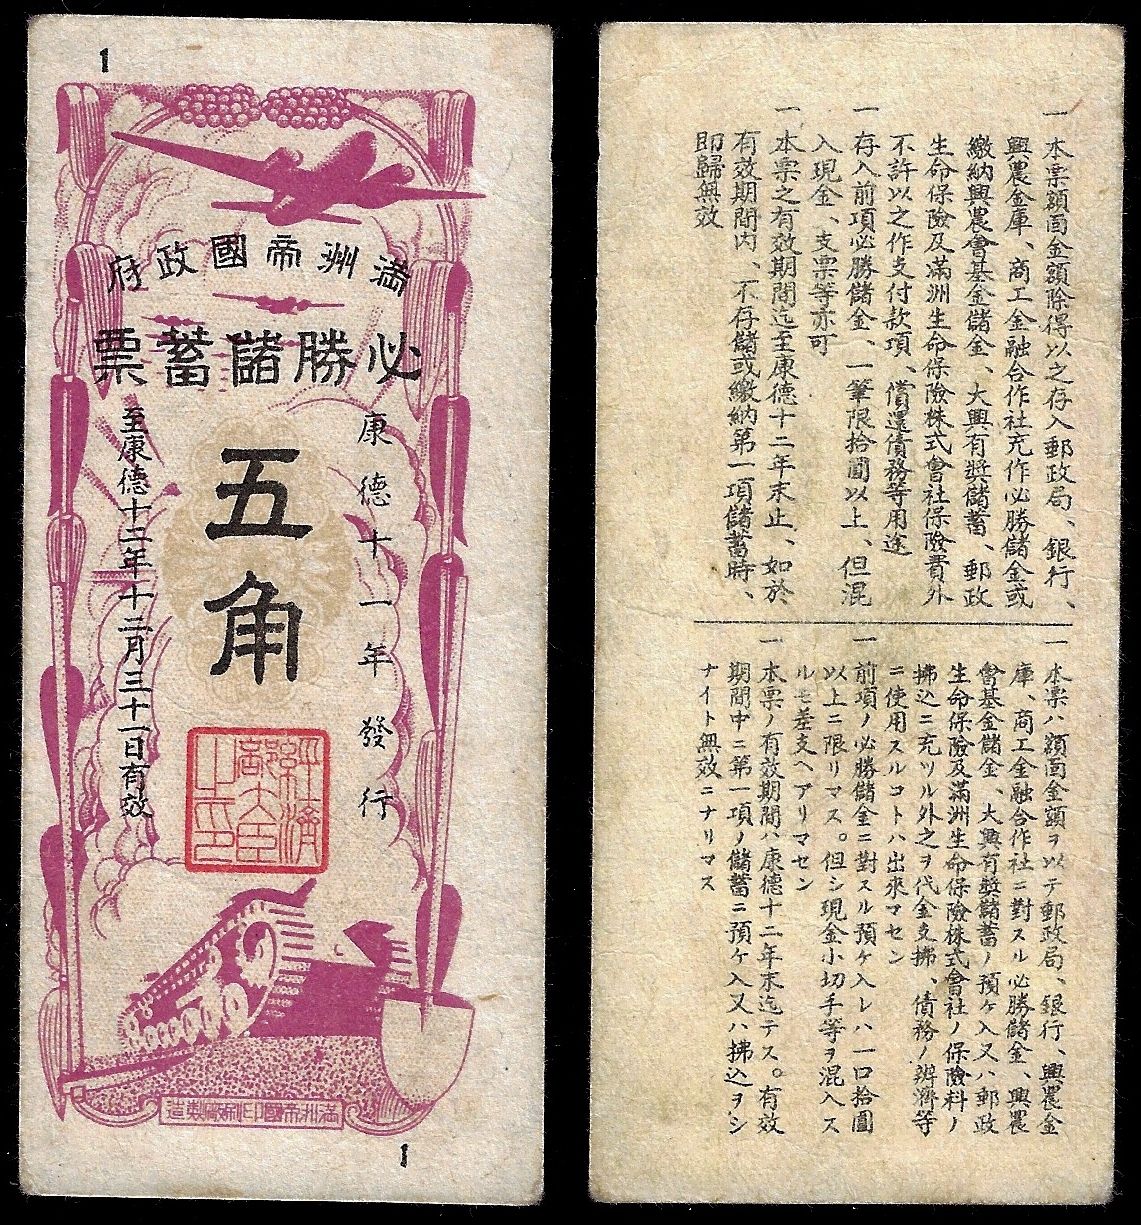 1
滿洲帝國政府
必勝儲蓄票
康德十一年發行
五角
至康德十二年十二月三十一日有效
經濟部大臣之印
滿洲帝國印刷廠製造
1
一 本票額面金額除得以之存入郵政局、銀行、
興農金庫、商工金融合作社充作必勝儲金或
繳納興農會基金儲金、大興有奬儲蓄、郵政
生命保險及滿洲生命保險株式會社保險費外
不許以之作支付款項、償還債務等用途
一 存入前項必勝儲金、一筆限拾圓以上、但混
入現金、支票等亦可
一 本票之有效期間迄至康德十二年末止、如於
有效期間內、不存儲或繳納第一項儲蓄時、
即歸無效
一 本票ハ額面金額ヲ以テ郵政局、銀行、興農金
庫、商工金融合作社ニ對スル必勝儲金、興農
會基金儲金、大興有奬儲蓄ノ預ケ入又ハ郵政
生命保險及滿洲生命保險株式會社ノ保險料ノ
拂込ニ充ツル外之ヲ代金支拂、債務ノ辨濟等
ニ使用スルコトハ出來マセン
一 前項ノ必勝儲金ニ對スル預ケ入レハ一口拾圓
以上ニ限リマス。但シ現金小切手等ヲ混入ス
ルモ差支ヘアリマセン
一 本票ノ有效期間ハ康德十二年末迄テス。有效
期間中ニ第一項ノ儲蓄ニ預ケ入又ハ拂込ヲシ
ナイト無效ニナリマス